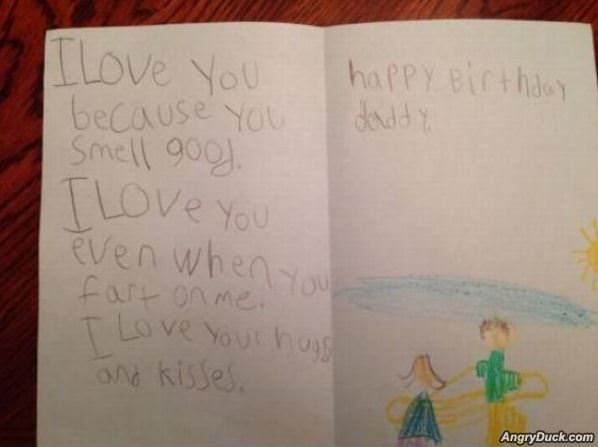 I Love You
because You
Smell good.
I Love You
even when you
fart on me.
I Love Your hugs
and kisses.
happy Birthday
daddy.
AngryDuck.com